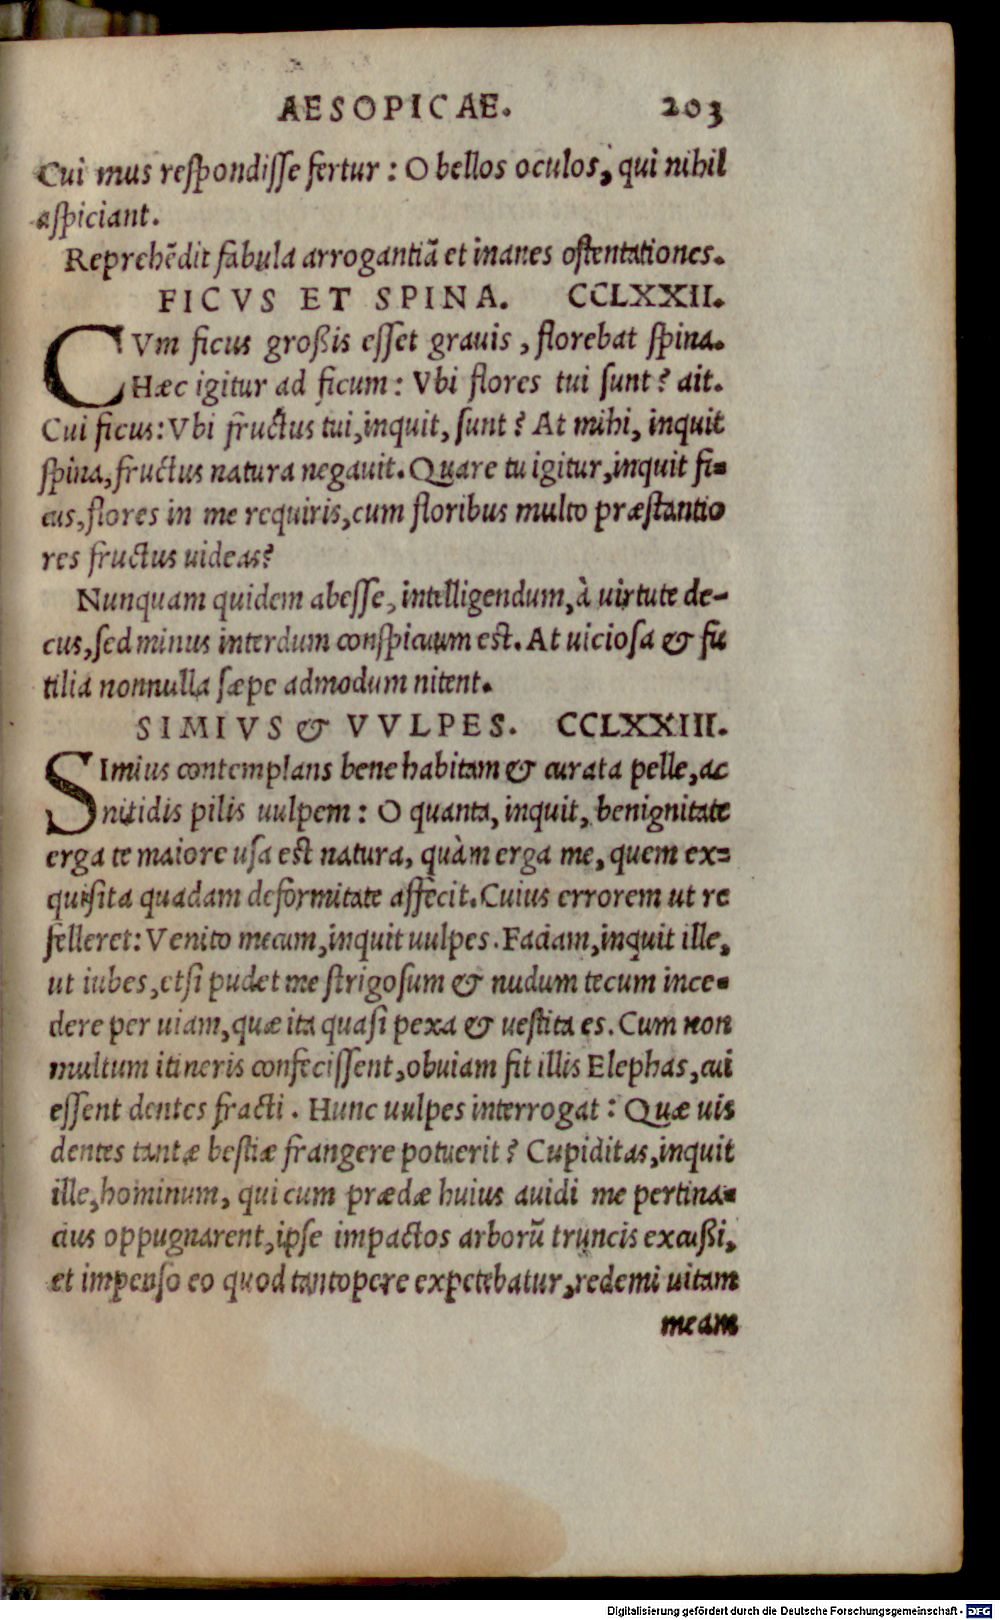 AESOPICAE. 203
Cui mus respondisse fertur : O bellos oculos, qui nihil
aspiciant.
Reprehēdit fabula arrogantiā et inanes ostentationes.
FICVS ET SPINA. CCLXXII.
CVm ficus großis esset grauis , florebat spina.
Hæc igitur ad ficum : Vbi flores tui sunt? ait.
Cui ficus: Vbi fructus tui, inquit, sunt? At mihi, inquit
spina, fructus natura negauit. Quare tu igitur, inquit fi-
cus, flores in me requiris, cum floribus multo præstantio
res fructus uideas?
Nunquam quidem abesse, intelligendum, à uirtute de-
cus, sed minus interdum conspicuum est. At uiciosa & fu
tilia nonnulla sæpe admodum nitent.
SIMIVS & VVLPES. CCLXXIII.
SImius contemplans bene habitam & curata pelle, ac
nitidis pilis uulpem : O quanta, inquit, benignitate
erga te maiore usa est natura, quàm erga me, quem ex-
quisita quadam deformitate affecit. Cuius errorem ut re
felleret: Venito mecum, inquit uulpes. Faciam, inquit ille,
ut iubes, etsi pudet me strigosum & nudum tecum ince-
dere per uiam, quæ ita quasi pexa & uestita es. Cum non
multum itineris confecissent, obuiam fit illis Elephas, cui
essent dentes fracti . Hunc uulpes interrogat : Quæ uis
dentes tantæ bestiæ frangere potuerit? Cupiditas, inquit
ille, hominum, qui cum prædæ huius auidi me pertina-
cius oppugnarent, ipse impactos arborū truncis excußi,
et impenso eo quod tantopere expetebatur, redemi uitam
meam
Digitalisierung gefördert durch die Deutsche Forschungsgemeinschaft - DFG